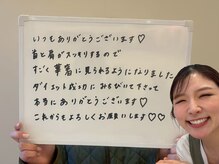 いつもありがとうございます♡
首と肩がスッキリするので
すごく華奢に見られるようになりました
ダイエット成功にみちびいて下さって
本当にありがとうございます♡
これからもよろしくお願いします♡♡